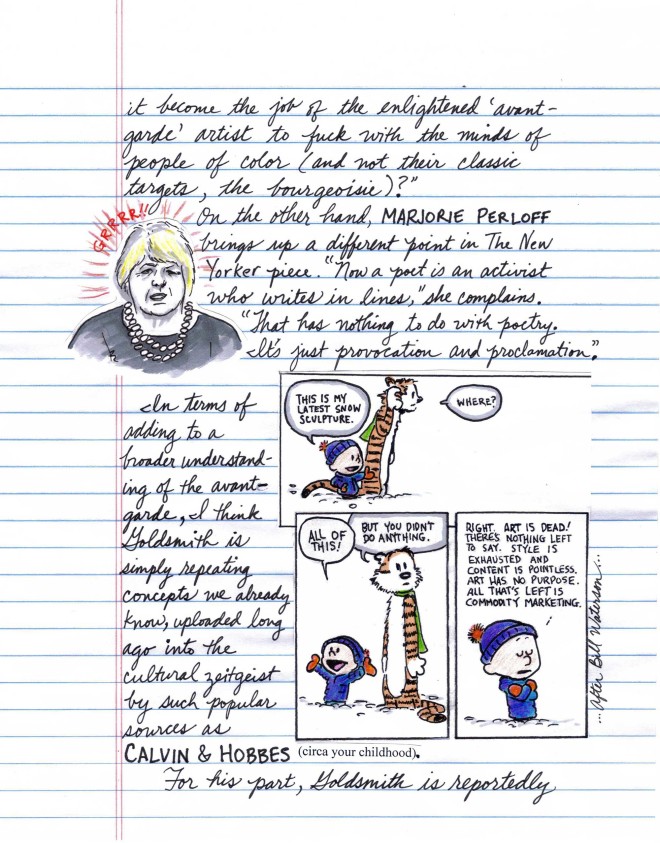 it become the job of the enlightened 'avant-
garde' artist to fuck with the minds of
people of color (and not their classic
targets, the bourgeoisie)?"
GRRRR!!
On the other hand, MARJORIE PERLOFF
brings up a different point in The New
Yorker piece. "Now a poet is an activist
who writes in lines," she complains.
"That has nothing to do with poetry.
It's just provocation and proclamation".
In terms of
adding to a
broader understand-
ing of the avant-
garde, I think
Goldsmith is
simply repeating
concepts we already
know, uploaded long
ago into the
cultural zeitgeist
by such popular
sources as
CALVIN & HOBBES (circa your childhood).
THIS IS MY
LATEST SNOW
SCULPTURE.
WHERE?
ALL OF
THIS!
BUT YOU DIDN'T
DO ANYTHING.
RIGHT. ART IS DEAD!
THERE'S NOTHING LEFT
TO SAY. STYLE IS
EXHAUSTED AND
CONTENT IS POINTLESS.
ART HAS NO PURPOSE.
ALL THAT'S LEFT IS
COMMODITY MARKETING.
...After Bill Waterson...
For his part, Goldsmith is reportedly